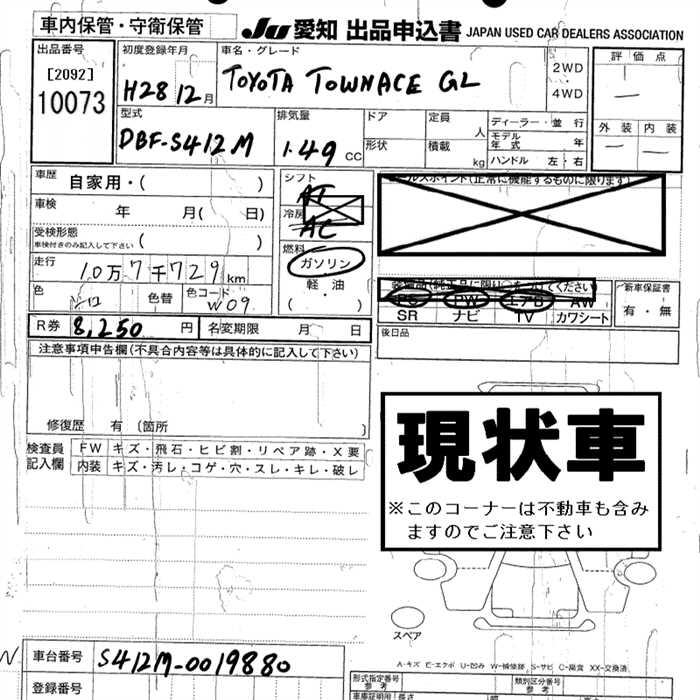 車内保管・守衛保管
JU 愛知 出品申込書 JAPAN USED CAR DEALERS ASSOCIATION
出品番号
[2092]
10073
初度登録年月
H28 12月
車名・グレード
TOYOTA TOWNACE GL
2WD
・
4WD
評価点
—
外装 内装
— —
型式
DBF-S412M
排気量
1.49 cc
ドア
形状
定員 人
積載 kg
ディーラー・並行
モデル年式 年
ハンドル 左・右
車歴 自家用・( )
車検 年 月( 日)
受検形態
車検付きのみ記入して下さい ( )
走行 10万7千729km
色 色替 色コード W09
シフト
AT
冷房
AC
燃料
ガソリン
・
軽油
( )
(正常に機能するものに限ります)
PS PW エアB AW
SR ナビ TV カワシート
新車保証書
有・無
R券 8,250 円 名変期限 月 日
後日品
注意事項申告欄(不具合内容等は具体的に記入して下さい)
修復歴 有 〔箇所
検査員記入欄
FW キズ・飛石・ヒビ割・リペア跡・X要
内装 キズ・汚レ・コゲ・穴・スレ・キレ・破レ
現状車
※このコーナーは不動車も含み
ますのでご注意下さい
スペア
A-キズ E-エクボ U-凹み W-補修跡 S-サビ C-腐食 XX-交換済
車台番号 S412M-0019880
登録番号
形式指定番号
参考
類別区分番号
参考